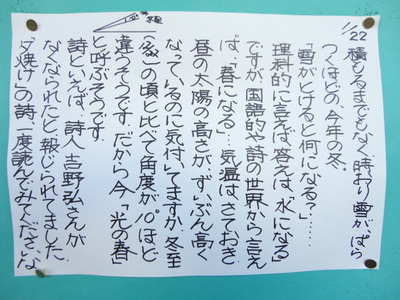 1/22
積もるまでもなく、時おり雪がぱら
つくほどの、今年の冬。
「雪がとけると何になる?……
理科的に言えば答えは、水になる」
ですが、国語的な詩の世界から言え
ば、「春になる」…気温はさておき
昼の太陽の高さが、ずいぶん高く
なっているのに気付いてますか。冬至
(12/22)の頃と比べて角度が10°ほど
違うそうです。だから今、「光の春」
と呼ぶそうです。
詩といえば、詩人吉野弘さんが
なくなられたと報じられてました。
「夕焼け」の詩、一度読んでみてくださいな